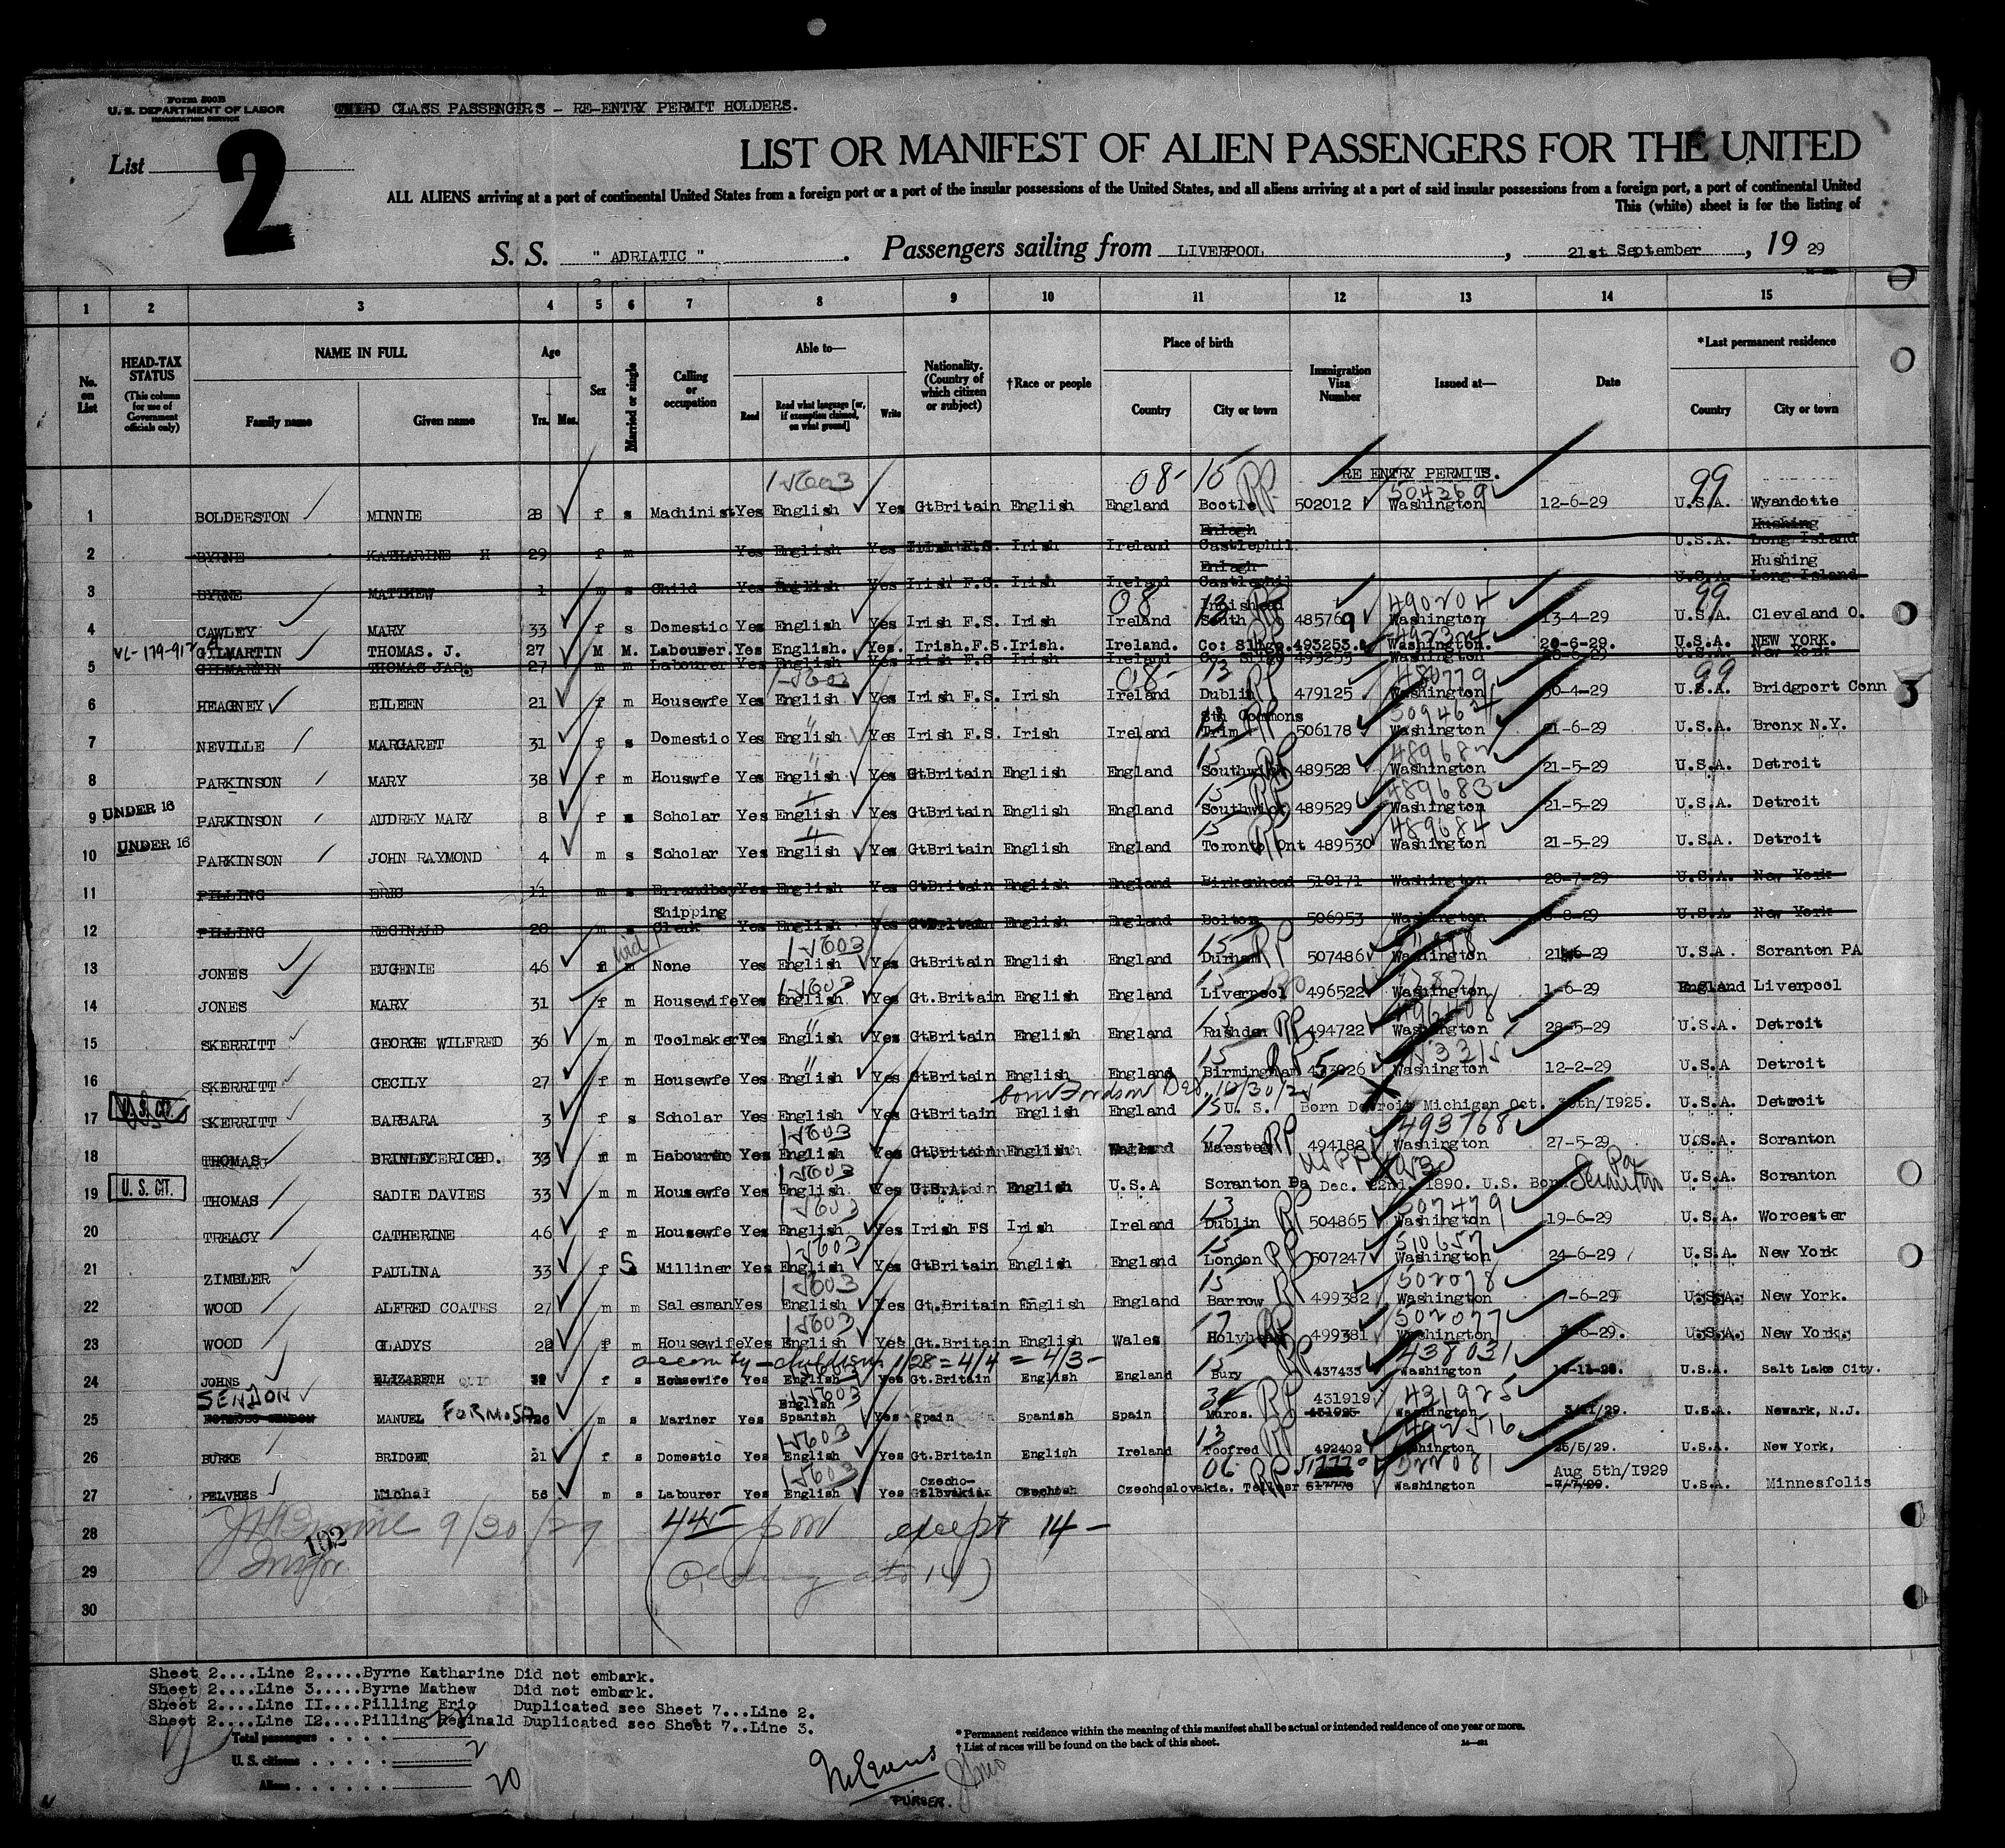 Form 500B
U. S. DEPARTMENT OF LABOR
IMMIGRATION SERVICE
THIRD CLASS PASSENGERS - RE-ENTRY PERMIT HOLDERS.
List 2
LIST OR MANIFEST OF ALIEN PASSENGERS FOR THE UNITED
ALL ALIENS arriving at a port of continental United States from a foreign port or a port of the insular possessions of the United States, and all aliens arriving at a port of said insular possessions from a foreign port, a port of continental United
This (white) sheet is for the listing of
S. S. " ADRIATIC " . Passengers sailing from LIVERPOOL , 21st September , 19 29
1 2 3 4 5 6 7 8 9 10 11 12 13 14 15
No. on List
HEAD-TAX STATUS (This column for use of Government officials only)
NAME IN FULL Family name Given name
Age Yrs. Mos.
Sex
Married or single
Calling or occupation
Able to— Read Read what language [or, if exemption claimed, on what ground] Write
Nationality. (Country of which citizen or subject)
†Race or people
Place of birth Country City or town
Immigration Visa Number
Issued at—
Date
*Last permanent residence Country City or town
RE ENTRY PERMITS.
1 BOLDERSTON MINNIE 28 f s Machinist Yes English Yes GtBritain English England Bootle 502012 Washington 12-6-29 U.S.A. Wyandotte
2 BYRNE KATHARINE H 29 f m Yes English Yes Irish F.S. Irish Ireland Castlephil U.S.A. Long Island
3 BYRNE MATTHEW 1 m s Child Yes English Yes Irish F.S. Irish Ireland Castlephil U.S.A. Hushing Long Island
4 CAWLEY MARY 33 f s Domestic Yes English Yes Irish F.S. Irish Ireland South 485769 490204 Washington 13-4-29 U.S.A. Cleveland O.
GILMARTIN THOMAS. J. 27 M M. Labourer. Yes English. Yes. Irish.F.S. Irish. Ireland. Co: Sligo. 493253. Washington. 20-6-29. U.S.A. NEW YORK.
5 GILMARTIN THOMAS JAS. 27 m m Labourer Yes English Yes Irish F.S Irish Ireland Co. Sligo 493253 Washington U.S.A. New York
6 HEAGNEY EILEEN 21 f m Housewfe Yes English Yes Irish F.S. Irish Ireland Dublin 479125 480779 Washington 30-4-29 U.S.A. Bridgport Conn
7 NEVILLE MARGARET 31 f s Domestic Yes English Yes Irish F.S. Irish Ireland Sth Commons Trim 506178 Washington 21-6-29 U.S.A. Bronx N.Y.
8 PARKINSON MARY 38 f m Houswfe Yes English Yes GtBritain English England Southwick 489528 489682 Washington 21-5-29 U.S.A. Detroit
9 UNDER 16 PARKINSON AUDREY MARY 8 f s Scholar Yes English Yes GtBritain English England Southwick 489529 489683 Washington 21-5-29 U.S.A. Detroit
10 UNDER 16 PARKINSON JOHN RAYMOND 4 m s Scholar Yes English Yes GtBritain English England Toronto Ont 489530 489684 Washington 21-5-29 U.S.A. Detroit
11 PILLING ERIC 11 m s Errandboy Yes English Yes GtBritain English England Birkenhead 510171 Washington 20-7-29 U.S.A. New York
12 PILLING REGINALD 20 m s Shipping Clerk Yes English Yes GtBritain English England Bolton 506953 Washington 8-8-29 U.S.A. New York
13 JONES EUGENIE 46 f m wid None Yes English Yes GtBritain English England Durham 507486 Washington 21-6-29 U.S.A. Scranton PA
14 JONES MARY 31 f m Housewife Yes English Yes Gt.Britain English England Liverpool 496522 Washington 1-6-29 England Liverpool
15 SKERRITT GEORGE WILFRED 36 m m Toolmaker Yes English Yes GtBritain English England Rushden 494722 Washington 28-5-29 U.S.A. Detroit
16 SKERRITT CECILY 27 f m Housewfe Yes English Yes GtBritain English England Birmingham Washington 12-2-29 U.S.A Detroit
17 SKERRITT BARBARA 3 f s Scholar Yes English Yes GtBritain English England U. S. Born Detroit Michigan Oct. 30th/1925. U.S.A. Detroit
18 THOMAS 33 m Labourer Yes English Yes GtBritain English Maesteg 494188 493768 Washington 27-5-29 U.S.A. Scranton
19 U. S. CIT. THOMAS SADIE DAVIES 33 m m Housewfe Yes English Yes U.S.A. English U.S.A Scranton Pa Dec. 22nd. 1890. U.S. Born Scranton Pa U.S.A. Scranton
20 TREACY CATHERINE 46 f m Housewfe Yes English Yes Irish FS Irish Ireland Dublin 504865 507479 Washington 19-6-29 U.S.A. Worcester
21 ZIMBLER PAULINA 33 f S Milliner Yes English Yes GtBritain English England London 507247 510657 Washington 24-6-29 U.S.A. New York
22 WOOD ALFRED COATES 27 m m Salesman Yes English Yes Gt.Britain English England Barrow 499382 502078 Washington 7-6-29 U.S.A. New York.
23 WOOD GLADYS 22 f m Housewife Yes English Yes Gt.Britain English Wales Holyhead 499381 502077 Washington 7-6-29. U.S.A. New York.
24 JOHNS ELIZABETH f s Housewife Yes English Yes Gt.Britain English England Bury 437433 438031 Washington U.S.A. Salt Lake City.
25 SENDON MANUEL FORMOSA 26 m s Mariner Yes English Spanish Yes Spain Spanish Spain Muros. 431919 431925 Washington U.S.A. Newark, N.J.
26 BURKE BRIDGET 21 f s Domestic Yes English Yes Gt.Britain English Ireland Toofred 492402 492516 Washington 25/5/29. U.S.A. New York,
27 PELVHES Michal 56 m s Labourer Yes English Yes Czecho- Czechoslovakia. 522081 Washington Aug 5th/1929 U.S.A. Minnesfolis
28 9/30/29 445 except 14 -
29
30
102
Sheet 2....Line 2.....Byrne Katharine Did not embark.
Sheet 2....Line 3.....Byrne Mathew Did not embark.
Sheet 2....Line II....Pilling Eric Duplicated see Sheet 7...Line 2.
Sheet 2....Line I2....Pilling Reginald Duplicated see Sheet 7..Line 3.
Total passengers . . . .
U. S. citizens . . . . . 2
Aliens . . . . . . 20
* Permanent residence within the meaning of this manifest shall be actual or intended residence of one year or more.
† List of races will be found on the back of this sheet.
PURSER.